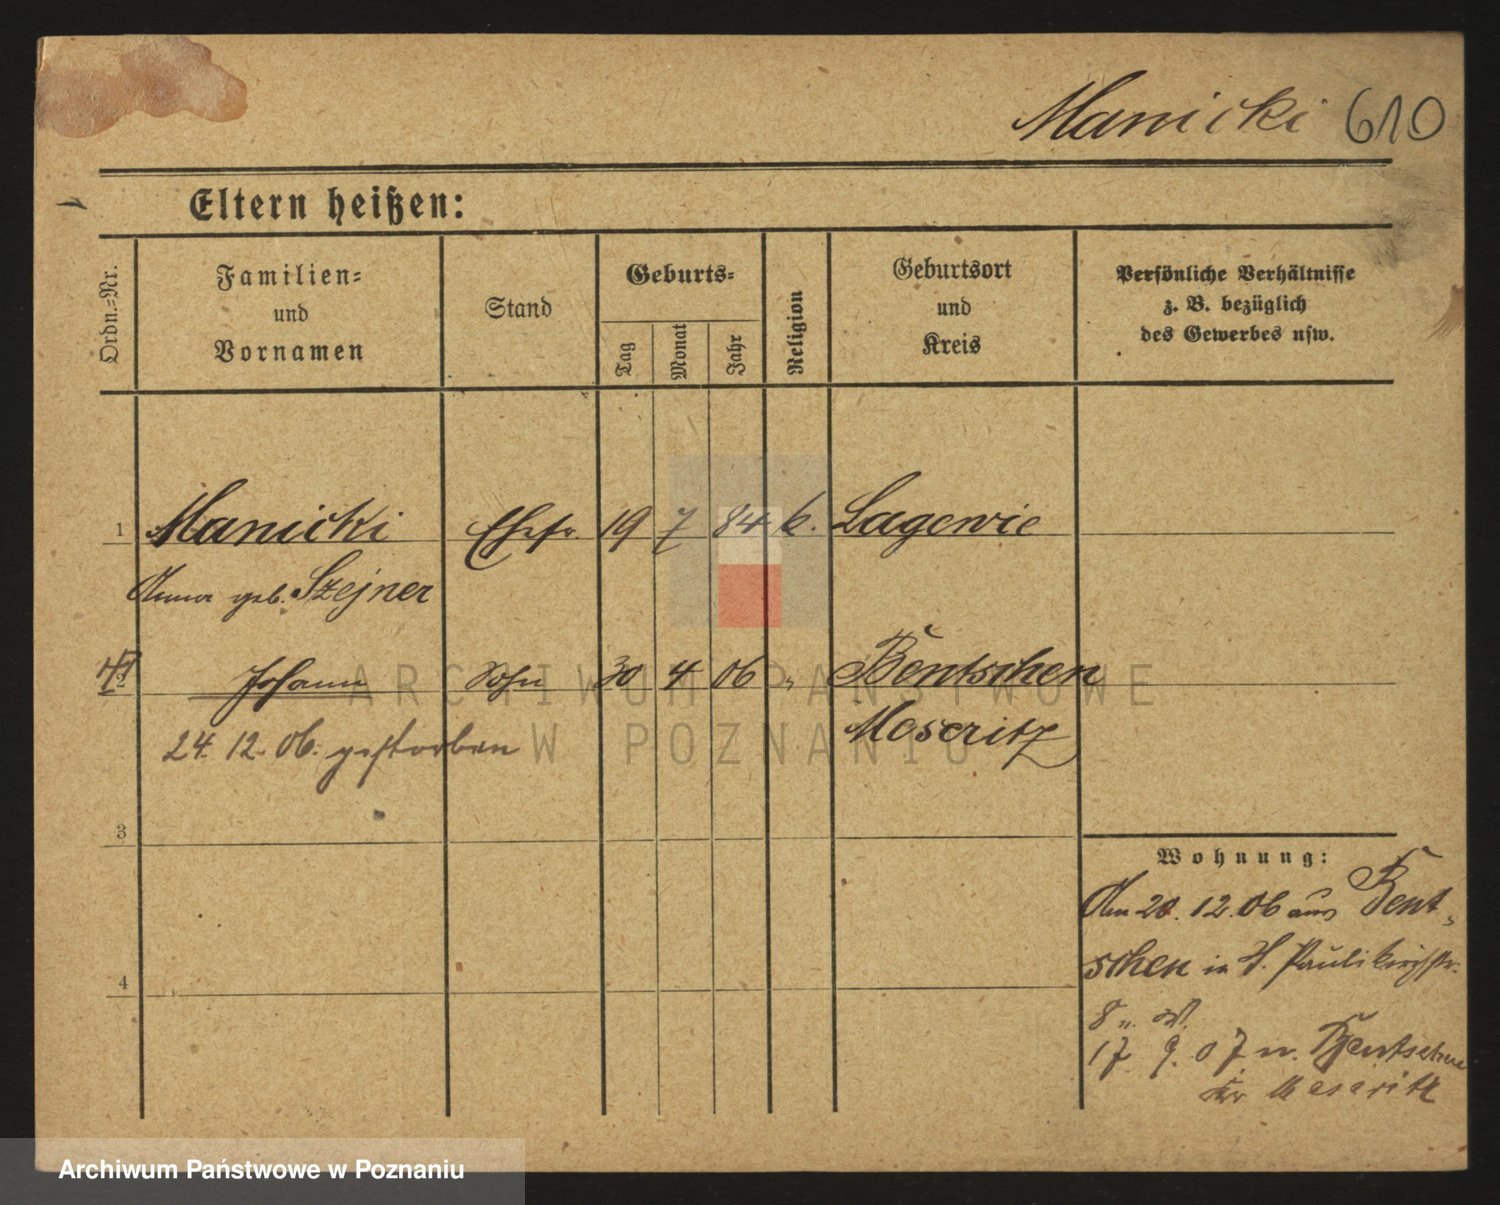 Manicki 610
Eltern heißen:
Ordn.-Nr.
Familien-
und
Vornamen
Stand
Geburts-
Tag
Monat
Jahr
Religion
Geburtsort
und
Kreis
Persönliche Verhältnisse
z. B. bezüglich
des Gewerbes usw.
1 Manicki Ehefr. 19 7 84 k. Lagewie
Anna geb. Szejner
2 Johann Sohn 30 4 06 " Bentschen
Meseritz
24. 12. 06. gestorben
3
4
Wohnung:
Am 20. 12. 06 aus Bent-
schen in Paulikirchstr.
8
17. 9. 07 n. Bentschen
Kr Meseritz
ARCHIWUM PAŃSTWOWE
W POZNANIU
Archiwum Państwowe w Poznaniu